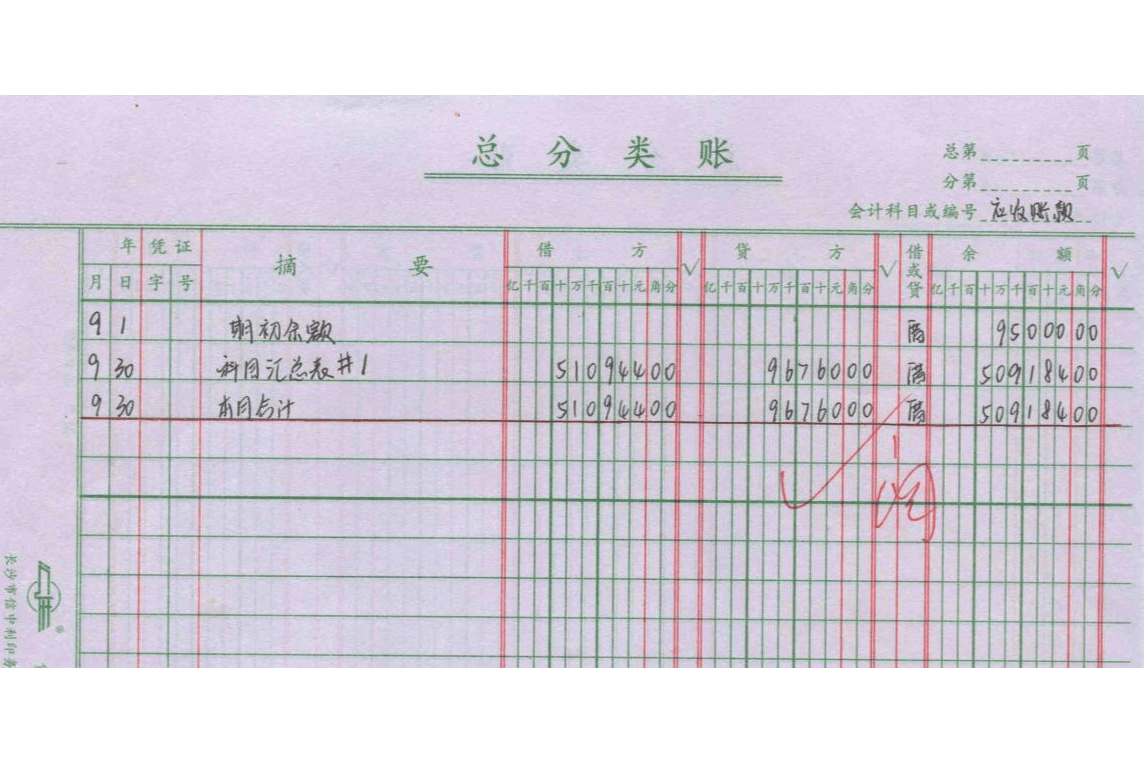 总分类账
总第 页
分第 页
会计科目或编号 应收账款
年 凭证 摘要 借方 √ 贷方 √ 借或贷 余额 √
月 日 字 号 亿千百十万千百十元角分 亿千百十万千百十元角分 亿千百十万千百十元角分
9 1 期初余额 借 9500000
9 30 科目汇总表#1 51094400 9676000 借 50918400
9 30 本月合计 51094400 9676000 借 50918400
长沙市信中利印务